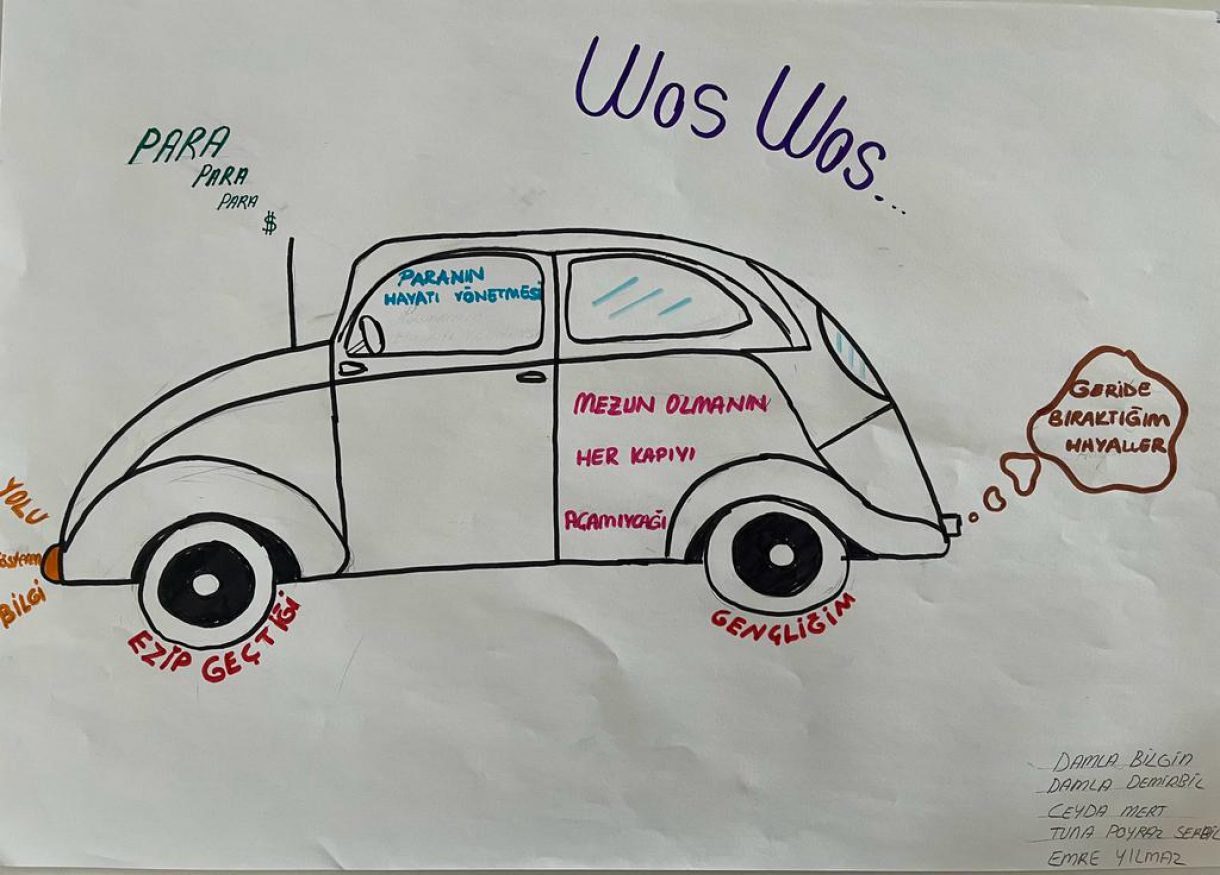 Wos Wos...
PARA
PARA
PARA
$
PARANIN
HAYATI YÖNETMESİ
MEZUN OLMANIN
HER KAPIYI
AÇAMIYCAĞI
GERİDE
BIRAKTIĞIM
HAYALLER
YOLU
GÖSTEREN
BİLGİ
EZİP GEÇTİĞİ
GENÇLİĞİM
DAMLA BİLGİN
DAMLA DEMİRBİL
CEYDA MERT
TUNA POYRAZ
EMRE YILMAZ